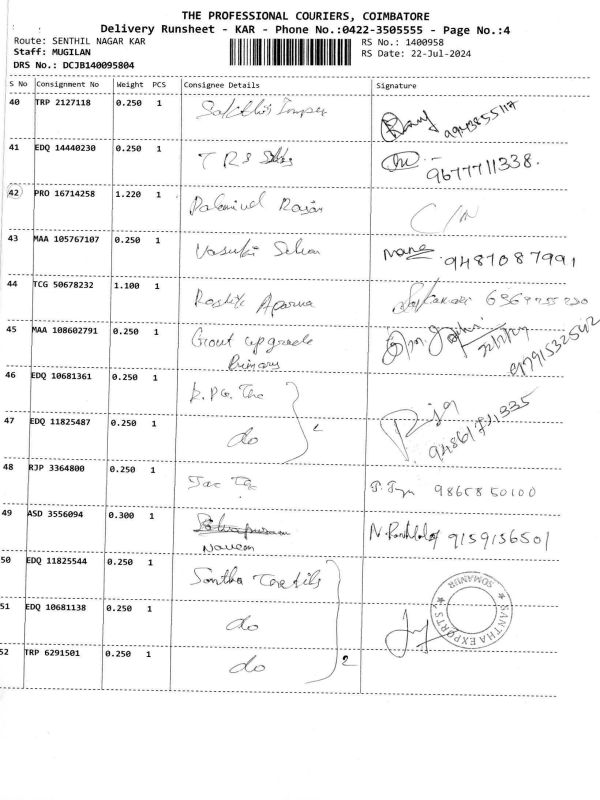 THE PROFESSIONAL COURIERS, COIMBATORE
Delivery Runsheet - KAR - Phone No.:0422-3505555 - Page No.:4
Route: SENTHIL NAGAR KAR
RS No.: 1400958
Staff: MUGILAN
RS Date: 22-Jul-2024
DRS No.: DCJB140095804
S No Consignment No Weight PCS Consignee Details Signature
40 TRP 2127118 0.250 1 Sakthi
41 EDQ 14440230 0.250 1 T R S
9677711338.
42 PRO 16714258 1.220 1 C/N
43 MAA 105767107 0.250 1 Vasuki
9487087991
44 TCG 50678232 1.100 1 Aparna
45 MAA 108602791 0.250 1 Govt upgrade
Primary
46 EDQ 10681361 0.250 1 Tex
47 EDQ 11825487 0.250 1 do
48 RJP 3364800 0.250 1 Tex 9865850100
49 ASD 3556094 0.300 1
Naveen 9159136501
50 EDQ 11825544 0.250 1 Santha Textils
51 EDQ 10681138 0.250 1 do
SANTHA EXPORTS SOMANUR
52 TRP 6291501 0.250 1 do 2